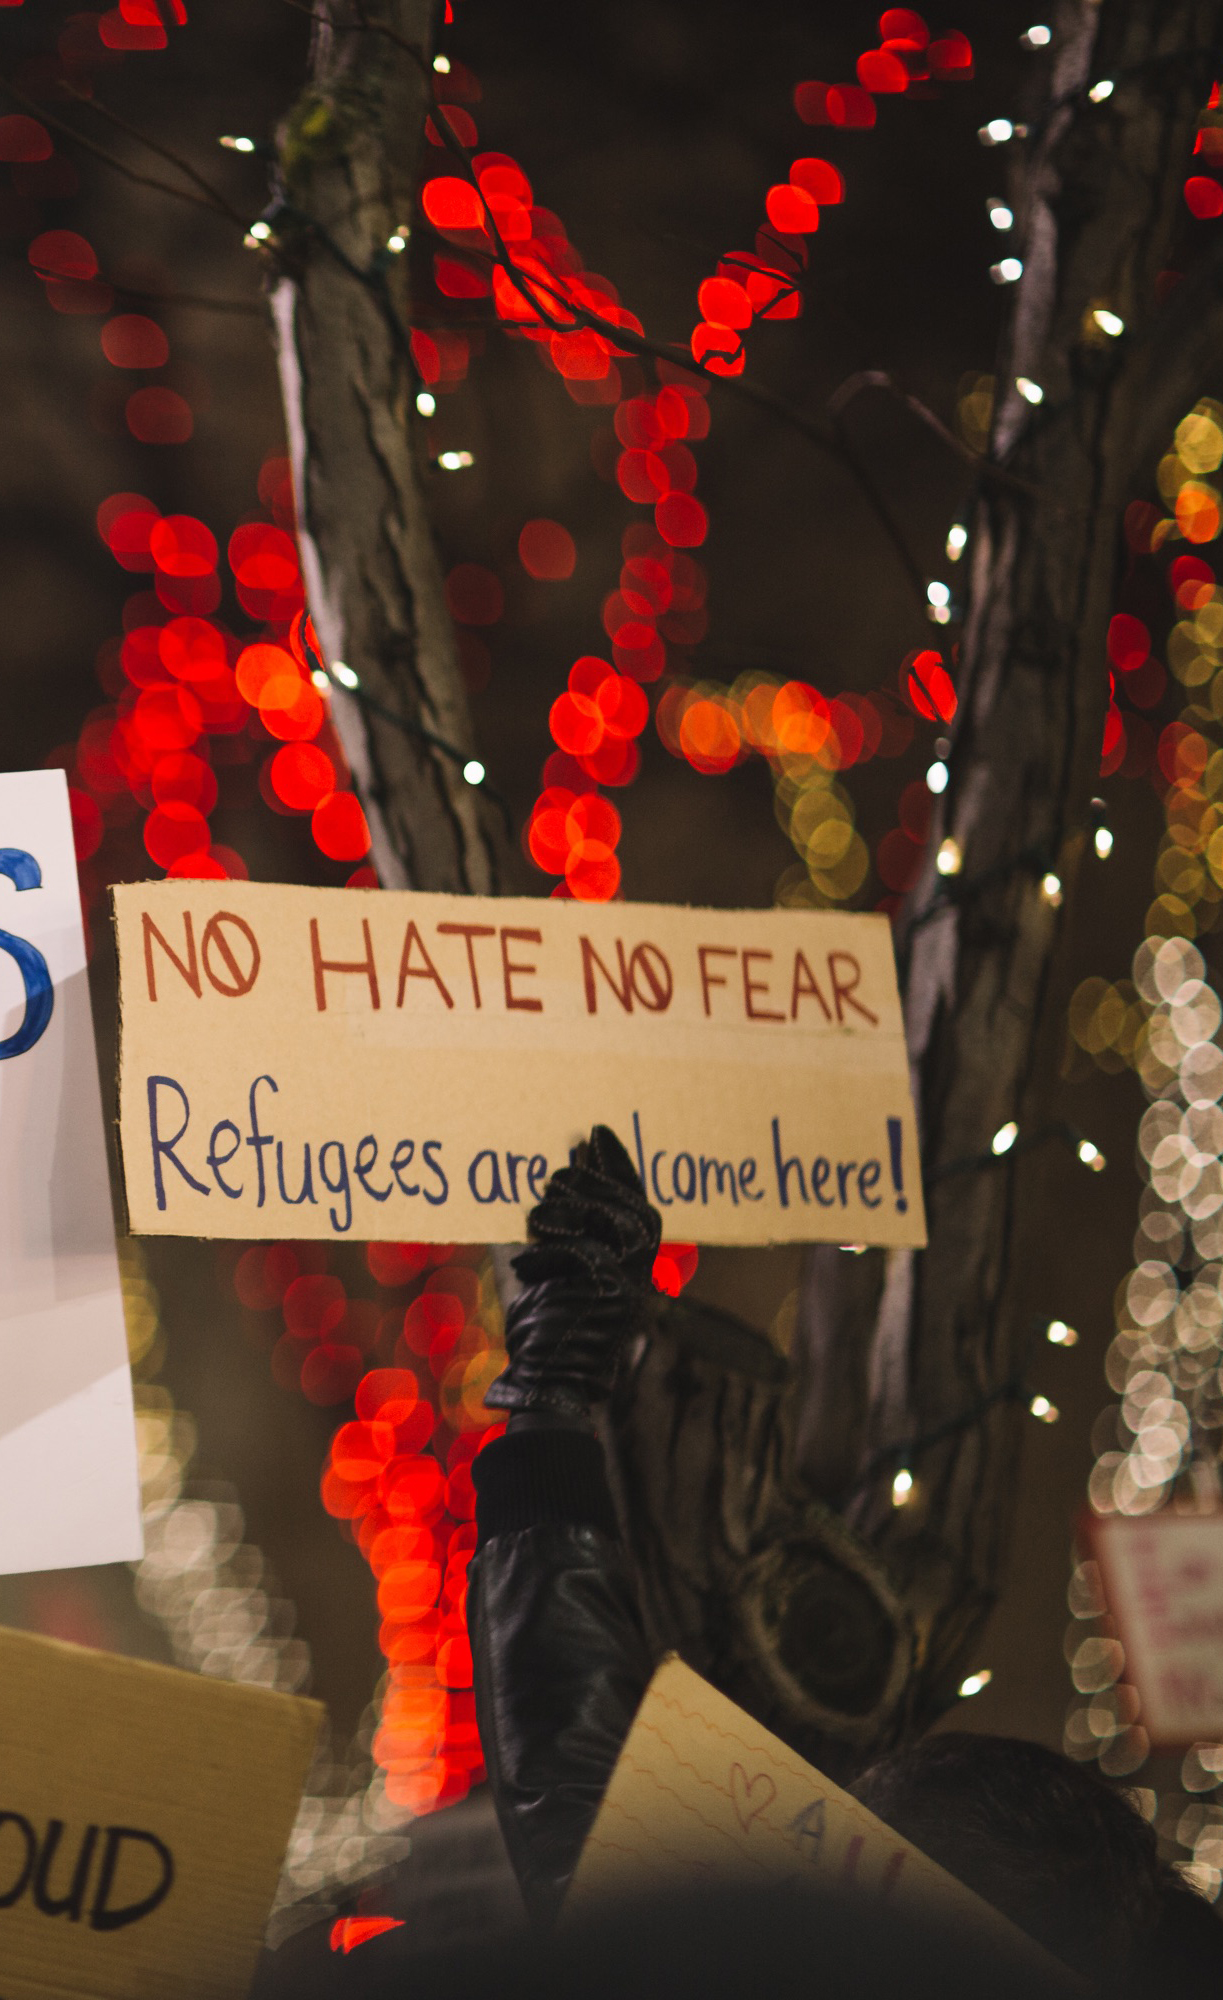 S
NO HATE NO FEAR
Refugees are welcome here!
OUD
♡ ALL